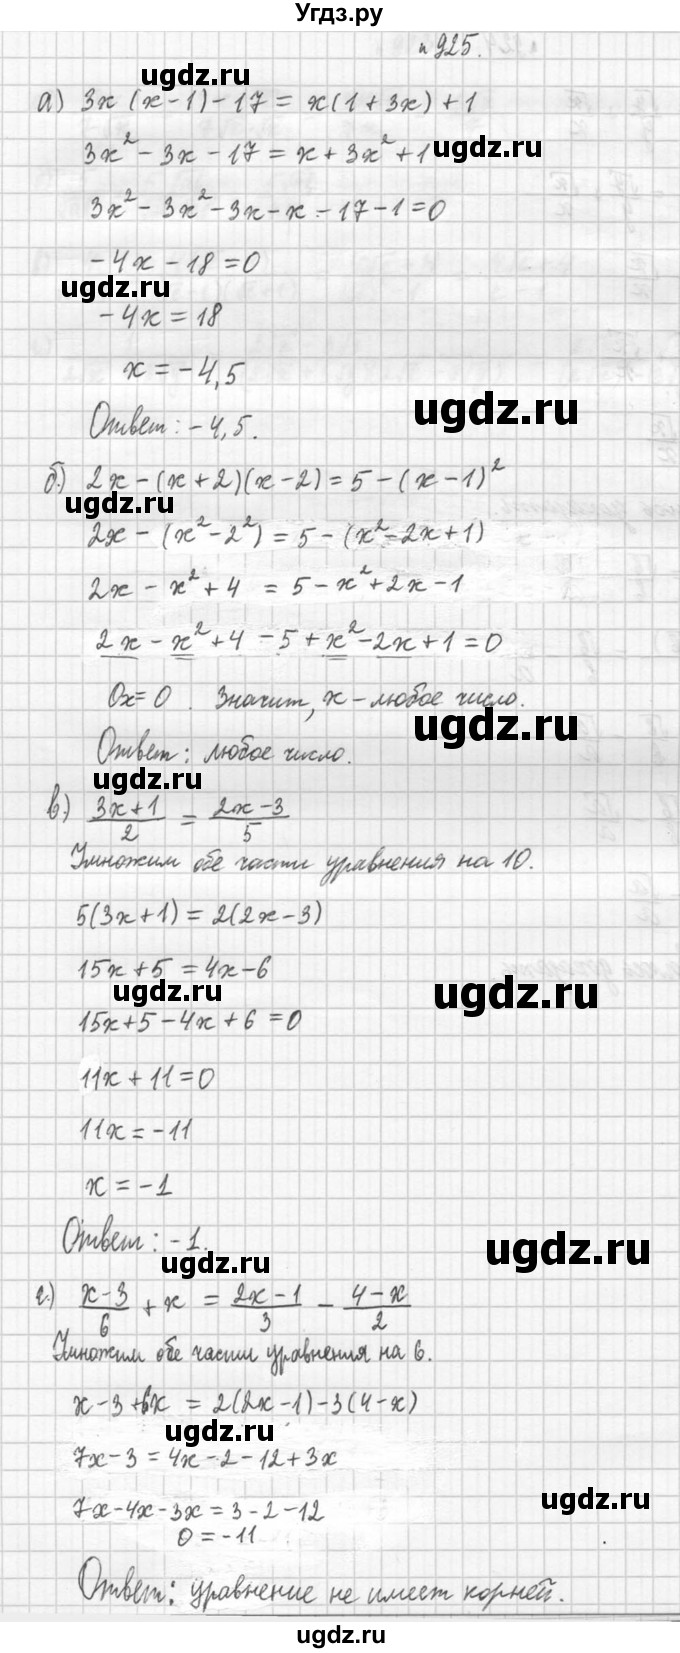 Угдз.ру
n 925.
ugdz.ru
а) 3x (x-1) - 17 = x(1+3x)+1
3x² - 3x - 17 = x + 3x² + 1
ugdz.ru
3x² - 3x² - 3x - x - 17 - 1 = 0
-4x - 18 = 0
ugdz.ru
-4x = 18
x = -4,5
ugdz.ru
Ответ: -4,5.
б) 2x - (x+2)(x-2) = 5 - (x-1)²
ugdz.ru
2x - (x² - 2²) = 5 - (x² - 2x + 1)
2x - x² + 4 = 5 - x² + 2x - 1
2x - x² + 4 - 5 + x² - 2x + 1 = 0
0x = 0. Значит, x - любое число.
ugdz.ru
Ответ: любое число.
ugdz.ru
в) (3x+1)/2 = (2x-3)/5
Умножим обе части уравнения на 10.
5(3x+1) = 2(2x-3)
15x + 5 = 4x - 6
ugdz.ru
ugdz.ru
15x + 5 - 4x + 6 = 0
11x + 11 = 0
11x = -11
x = -1
Ответ: -1.
ugdz.ru
ugdz.ru
г) (x-3)/6 + x = (2x-1)/3 - (4-x)/2
Умножим обе части уравнения на 6.
x - 3 + 6x = 2(2x-1) - 3(4-x)
ugdz.ru
7x - 3 = 4x - 2 - 12 + 3x
ugdz.ru
7x - 4x - 3x = 3 - 2 - 12
0 = -11
Ответ: уравнение не имеет корней.
ugdz.ru